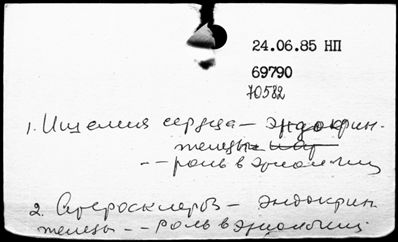 24.06.85 НП
69790
70582
1. Ишемия сердца – эндокрин-
железы
-- роль в этиологии
2. Атеросклероз – эндокрин
железы -- роль в этиологии